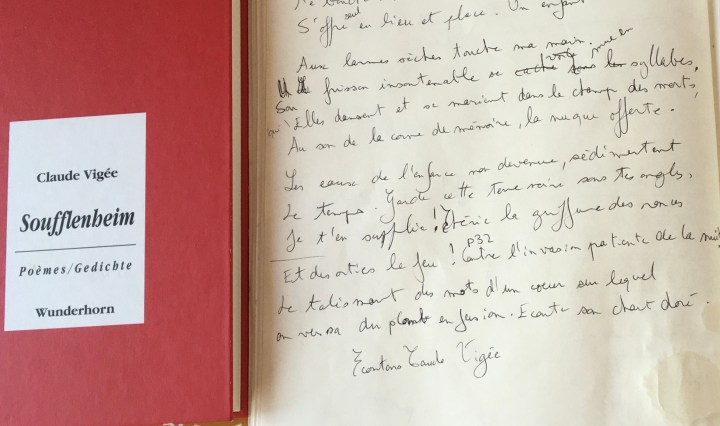 Claude Vigée
Soufflenheim
Poèmes/Gedichte
Wunderhorn
S'offre seul en lieu et place. Un enfant
Aux larmes sèches touche ma main.
Son frisson insoutenable se voile mue en syllabes,
Elles dansent et se marient dans le champ des morts,
Au son de la corne de mémoire, la nuque offerte.
Les eaux de l'enfance non devenue, sédimentent
Le temps. Garde cette terre noire sous tes ongles,
Je t'en supplie! la griffure des ronces
Et des orties le feu! p32 Contre l'invasion patiente de la nuit
Le talisman des mots d'un cœur sur lequel
on versa du plomb en fusion. Ecoute son chant doré.
Claude Vigée